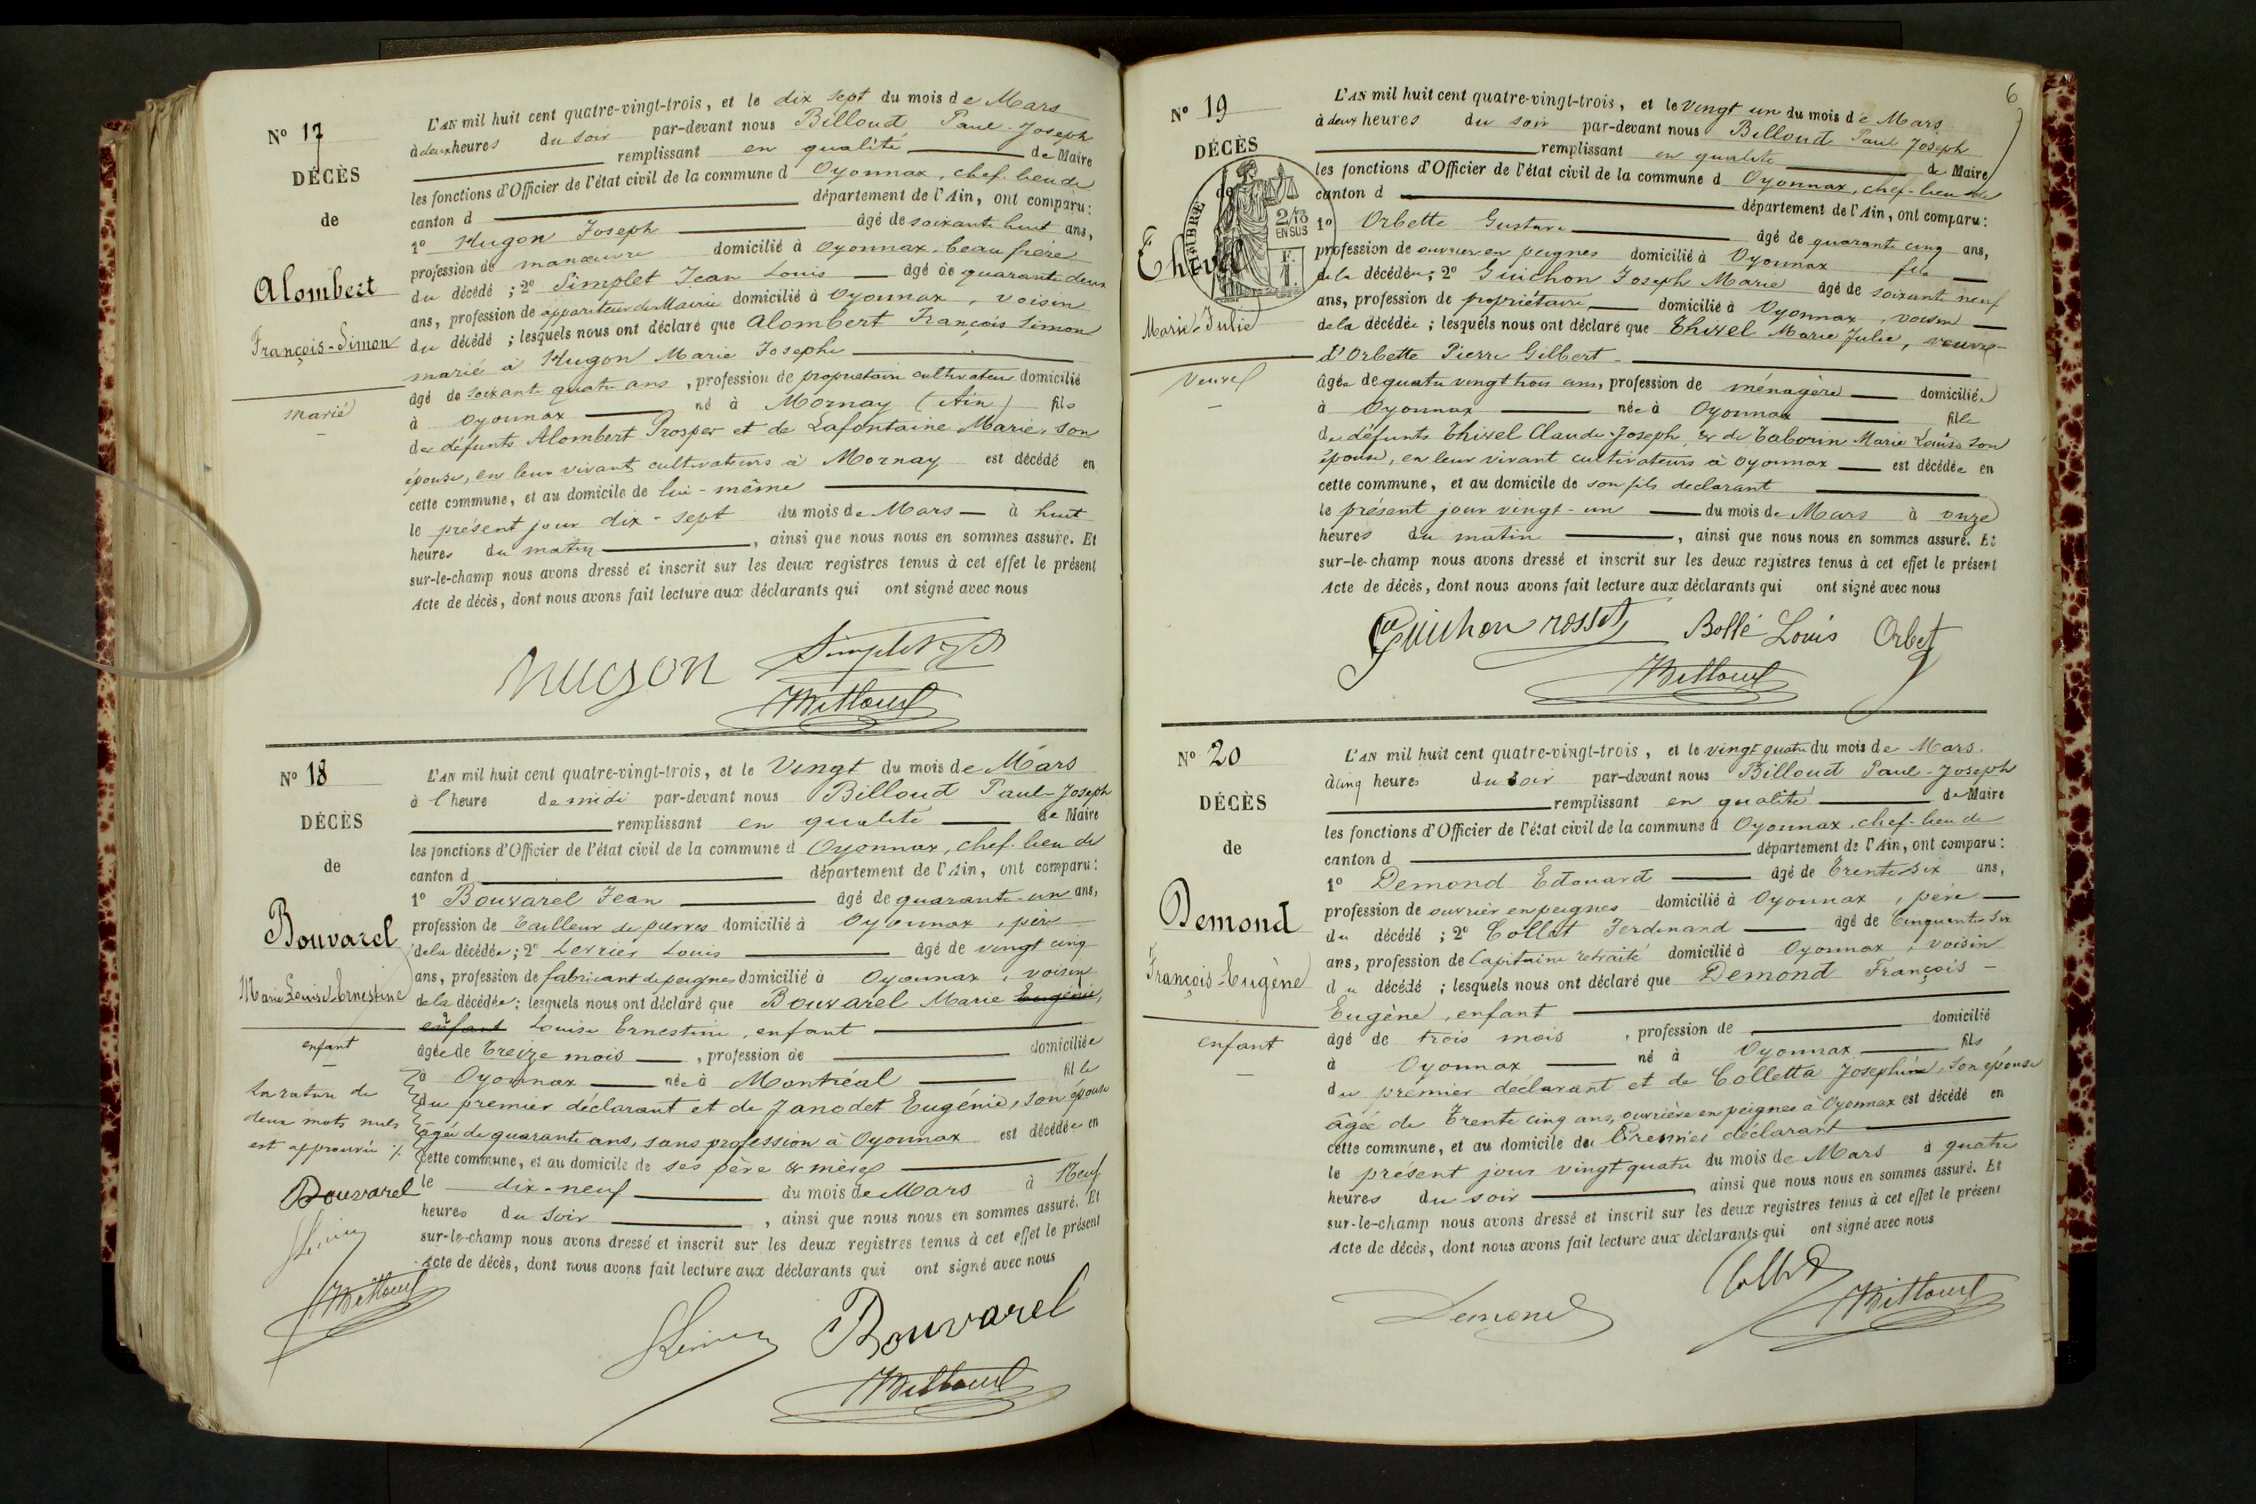 N° 17
DÉCÈS
de
Alombert
François-Simon
marié
L'AN mil huit cent quatre-vingt-trois, et le dix sept du mois de Mars
à deux heures du soir par-devant nous Billoud Paul-Joseph
remplissant en qualité de Maire
les fonctions d'Officier de l'état civil de la commune d Oyonnax, chef-lieu de
canton d département de l'Ain, ont comparu:
1° Hugon Joseph âgé de soixante huit ans,
profession de manœuvre domicilié à Oyonnax, beau frère
du décédé ; 2° Simplet Jean Louis âgé de quarante deux
ans, profession de appariteur de Mairie domicilié à Oyonnax, voisin
du décédé ; lesquels nous ont déclaré que Alombert François Simon
marié à Hugon Marie Josephe
âgé de soixante quatre ans, profession de propriétaire cultivateur domicilié
à Oyonnax né à Mornay (Ain) fils
de défunts Alombert Prosper et de Lafontaine Marie, son
épouse, en leur vivant cultivateurs à Mornay est décédé en
cette commune, et au domicile de lui-même
le présent jour dix-sept du mois de Mars à huit
heures du matin, ainsi que nous nous en sommes assuré. Et
sur-le-champ nous avons dressé et inscrit sur les deux registres tenus à cet effet le présent
Acte de décès, dont nous avons fait lecture aux déclarants qui ont signé avec nous
hugon Simplet
Billoud
N° 18
DÉCÈS
de
Bouvarel
Marie Louise Ernestine
enfant
La rature de
deux mots nuls
est approuvée
Bouvarel
Billoud
L'AN mil huit cent quatre-vingt-trois, et le Vingt du mois de Mars
à l'heure de midi par-devant nous Billoud Paul-Joseph
remplissant en qualité de Maire
les fonctions d'Officier de l'état civil de la commune d Oyonnax, chef-lieu de
canton d département de l'Ain, ont comparu:
1° Bouvarel Jean âgé de quarante-un ans,
profession de tailleur de pierres domicilié à Oyonnax, père
de la décédée; 2° Levrier Louis âgé de vingt cinq
ans, profession de fabricant de peignes domicilié à Oyonnax, voisin
de la décédée; lesquels nous ont déclaré que Bouvarel Marie Eugénie,
enfant Louise Ernestine, enfant
âgée de treize mois, profession de domiciliée
à Oyonnax née à Montréal fille
du premier déclarant et de Janodet Eugénie, son épouse
âgée de quarante ans, sans profession à Oyonnax est décédée en
cette commune, et au domicile de ses père & mère
le dix-neuf du mois de Mars à Neuf
heures du soir, ainsi que nous nous en sommes assuré. Et
sur-le-champ nous avons dressé et inscrit sur les deux registres tenus à cet effet le présent
Acte de décès, dont nous avons fait lecture aux déclarants qui ont signé avec nous
Bouvarel
Billoud
6
N° 19
DÉCÈS
de
TIMBRE
2/10
EN SUS
F.
1.
Thivel
Marie Julie
veuve
L'AN mil huit cent quatre-vingt-trois, et le Vingt un du mois de Mars
à deux heures du soir par-devant nous Billoud Paul Joseph
remplissant en qualité de Maire
les fonctions d'Officier de l'état civil de la commune d Oyonnax, chef-lieu de
canton d département de l'Ain, ont comparu:
1° Orbette Gustave âgé de quarante cinq ans,
profession de ouvrier en peignes domicilié à Oyonnax fils
de la décédée; 2° Guichon Joseph Marie âgé de soixante neuf
ans, profession de propriétaire domicilié à Oyonnax, voisin
de la décédée ; lesquels nous ont déclaré que Thivel Marie Julie, veuve
d'Orbette Pierre Gilbert
âgée de quatre vingt trois ans, profession de ménagère domiciliée
à Oyonnax née à Oyonnax fille
de défunts Thivel Claude-Joseph & de Taborin Marie Louise son
épouse, en leur vivant cultivateurs à Oyonnax est décédée en
cette commune, et au domicile de son fils déclarant
le présent jour vingt-un du mois de Mars à onze
heures du matin, ainsi que nous nous en sommes assuré. Et
sur-le-champ nous avons dressé et inscrit sur les deux registres tenus à cet effet le présent
Acte de décès, dont nous avons fait lecture aux déclarants qui ont signé avec nous
Guichon rosset Bollé Louis Orbet
Billoud
N° 20
DÉCÈS
de
Demond
François-Eugène
enfant
L'AN mil huit cent quatre-vingt-trois, et le vingt quatre du mois de Mars
à cinq heures du soir par-devant nous Billoud Paul-Joseph
remplissant en qualité de Maire
les fonctions d'Officier de l'état civil de la commune d Oyonnax, chef-lieu de
canton d département de l'Ain, ont comparu:
1° Demond Edouard âgé de trente six ans,
profession de ouvrier en peignes domicilié à Oyonnax, père
du décédé ; 2° Collat Ferdinand âgé de Cinquante six
ans, profession de Capitaine retraité domicilié à Oyonnax, voisin
du décédé ; lesquels nous ont déclaré que Demond François
Eugène, enfant
âgé de trois mois, profession de domicilié
à Oyonnax né à Oyonnax fils
du premier déclarant et de Colletta Joséphine, son épouse
âgée de trente cinq ans, ouvrière en peignes à Oyonnax est décédé en
cette commune, et au domicile du Premier déclarant
le présent jour vingt quatre du mois de Mars à quatre
heures du soir ainsi que nous nous en sommes assuré. Et
sur-le-champ nous avons dressé et inscrit sur les deux registres tenus à cet effet le présent
Acte de décès, dont nous avons fait lecture aux déclarants qui ont signé avec nous
Demond Collat
Billoud